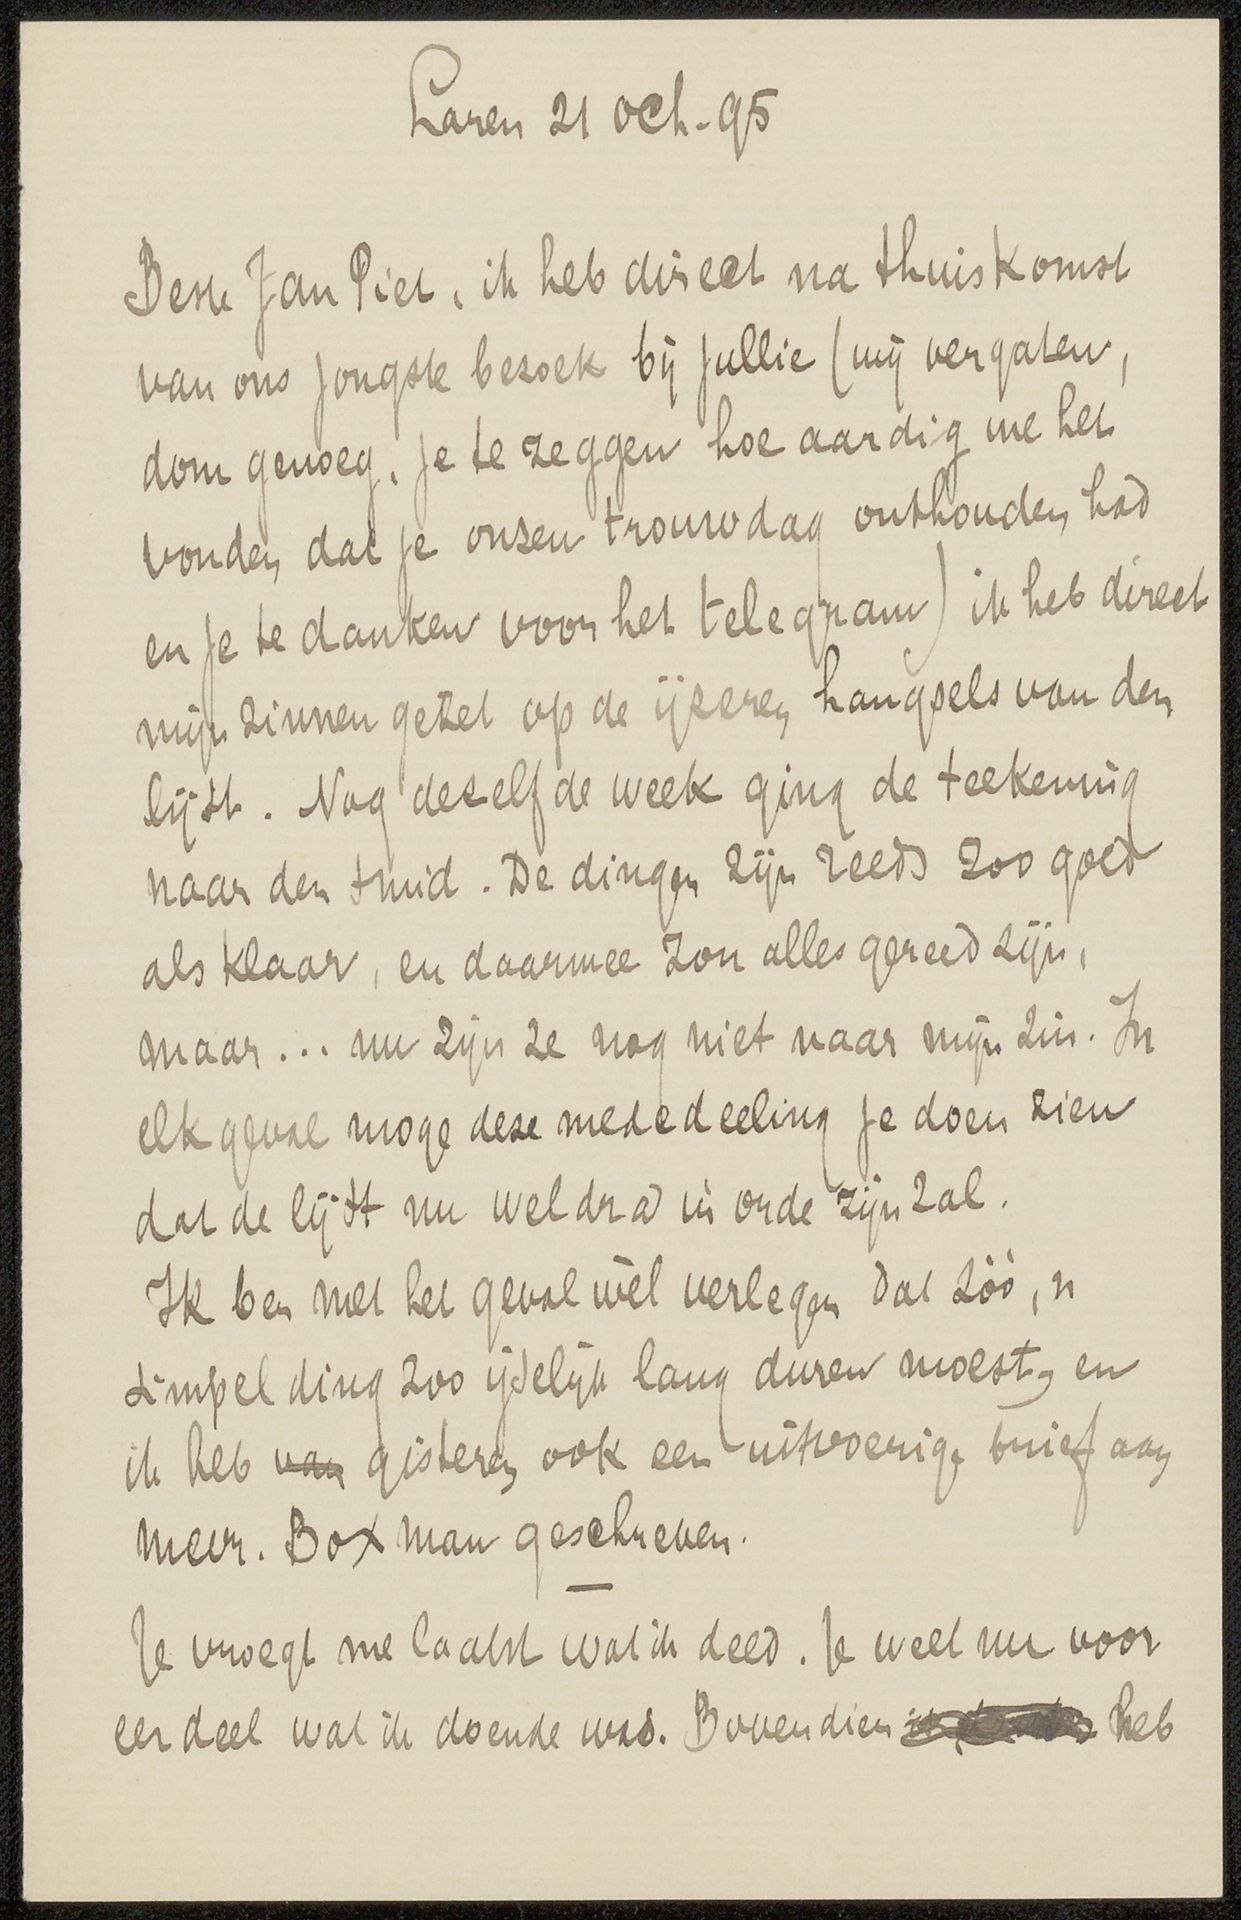 Laren 21 Oct. 95
Beste Jan Piet, ik heb direct na thuiskomst
van ons jongste bezoek bij jullie (wij vergaten,
dom genoeg, je te zeggen hoe aardig we het
vonden dat je onzen trouwdag onthouden had
en je te danken voor het telegram) ik heb direct
mijn zinnen gezet op de ijzeren hangsels van den
lijst. Nog dezelfde week ging de teekening
naar den smid. De dingen zijn reeds zoo goed
als klaar, en daarmee zou alles gereed zijn,
maar... nu zijn ze nog niet naar mijn zin. In
elk geval moge deze mededeeling je doen zien
dat de lijst nu weldra in orde zijn zal.
Ik ben met het geval wèl verlegen dat zóó 'n
simpel ding zoo ijselijk lang duren moest, en
ik heb van gisteren ook een uitvoerige brief aan
mevr. Boxman geschreven.
Je vroegt me laatst wat ik deed. Je weet nu voor
een deel wat ik doende was. Bovendien heb